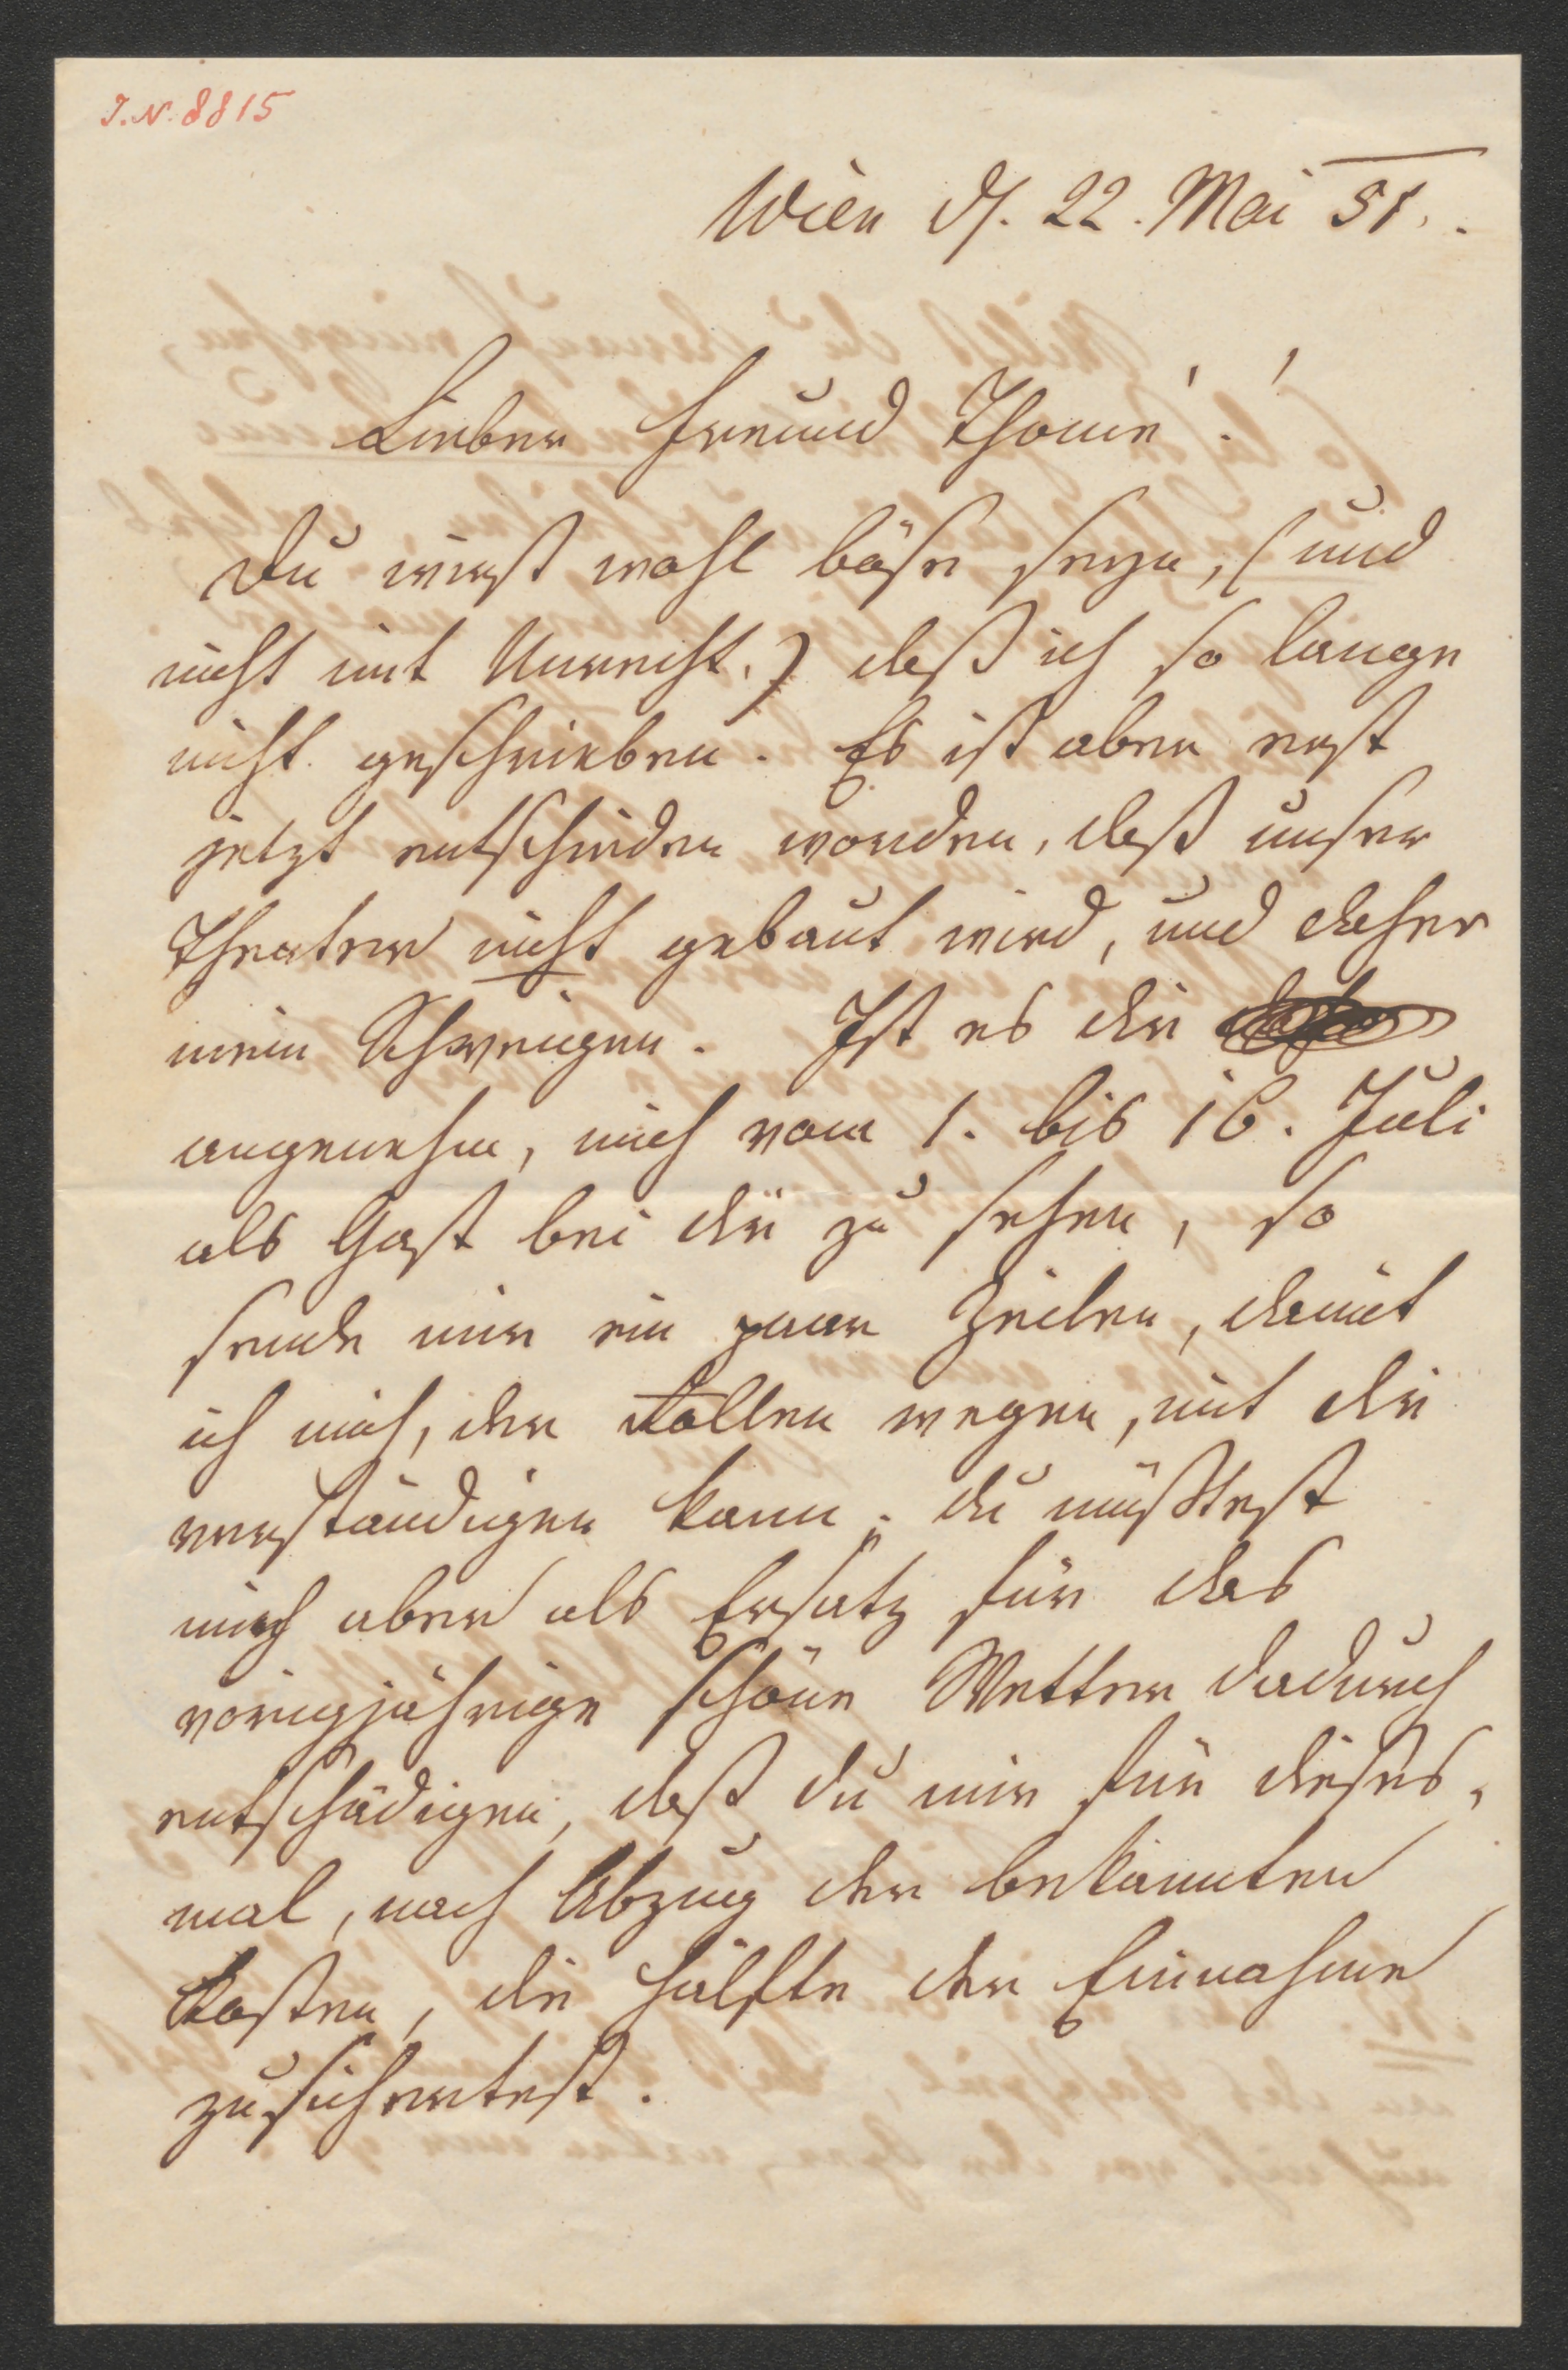 J.N. 8815
Wien d. 22. Mai 51.
Lieber Freund Thomé!
Du wirst wohl böse seyn, (und
nicht mit Unrecht.) daß ich so lange
nicht geschrieben. Es ist aber erst
jetzt entschieden worden, daß unser
Theater nicht gebaut wird, und daher
mein Schweigen. Ist es dir
angenehm, mich vom 1. bis 16. Juli
als Gast bei dir zu sehen, so
sende mir ein paar Zeilen, damit
ich mich, der Rollen wegen, mit dir
verständigen kann; du müßtest
mich aber als Ersatz für das
vorigjährige schöne Wetter dadurch
entschädigen, daß du mir für dieses,
mal, nach Abzug der bekannten
Kosten, die Hälfte der Einnahme
zusichertest.